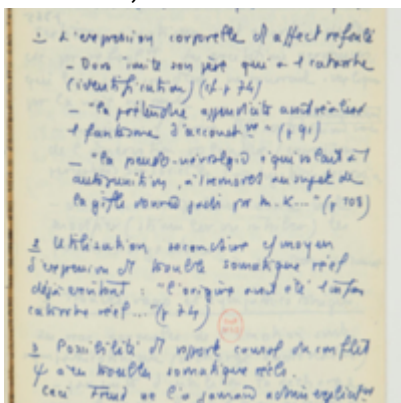 1. L'expression corporelle d'affect refoulé
– Dora imite son père qui a 1 catarrhe
(identification) (cf. p 74)
– "la prétendue appendicite avait réalisé
1 fantasme d'accouch nt" (p 91)
– "la pseudo-névralgie équivalait à 1
autopunition, à 1 remords au sujet de
la gifle donnée jadis par M. K..." (p 108)
2 Utilisation, secondaire c/ moyen
d'expression d trouble somatique réel
déjà existant : "l'origine avait été 1
catarrhe réel..." (p 74)
3 Possibilité d rapport causal du conflit
ψ à un trouble somatique réel.
Ceci Freud ne l'a jamais admis